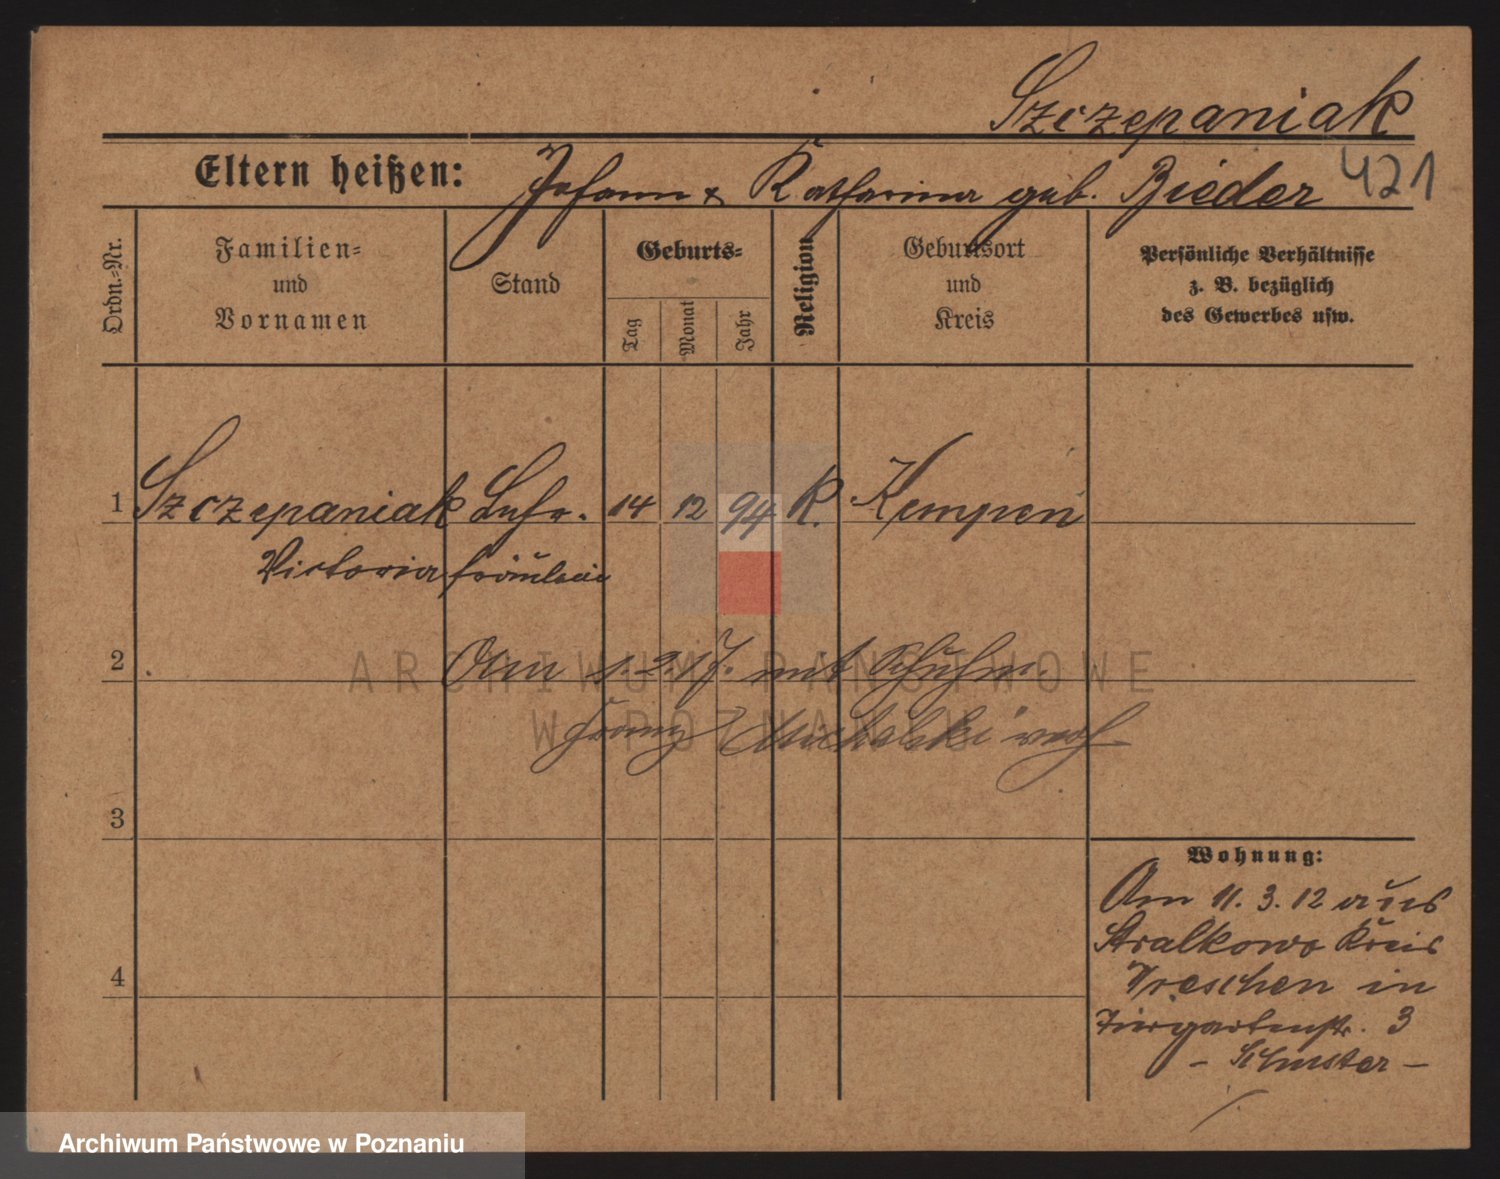 Szczepaniak
Eltern heißen: Johann & Katharina geb. Bieder 421
Ordn.-Nr.
Familien- und Vornamen
Stand
Geburts-
Tag Monat Jahr
Religion
Geburtsort und Kreis
Persönliche Verhältnisse
z. B. bezüglich
des Gewerbes usw.
1 Szczepaniak Lehr- 14 12 94 K. Kempen
Victoria fräulein
2 Am 1.2.17. mit Schuhm.
Franz Michalski verh
3
4
Wohnung:
Am 11. 3. 12 aus
Stralkowo Kreis
Wreschen in
Tiergartenstr. 3
- Schuster -
ARCHIWUM PAŃSTWOWE
W POZNANIU
Archiwum Państwowe w Poznaniu